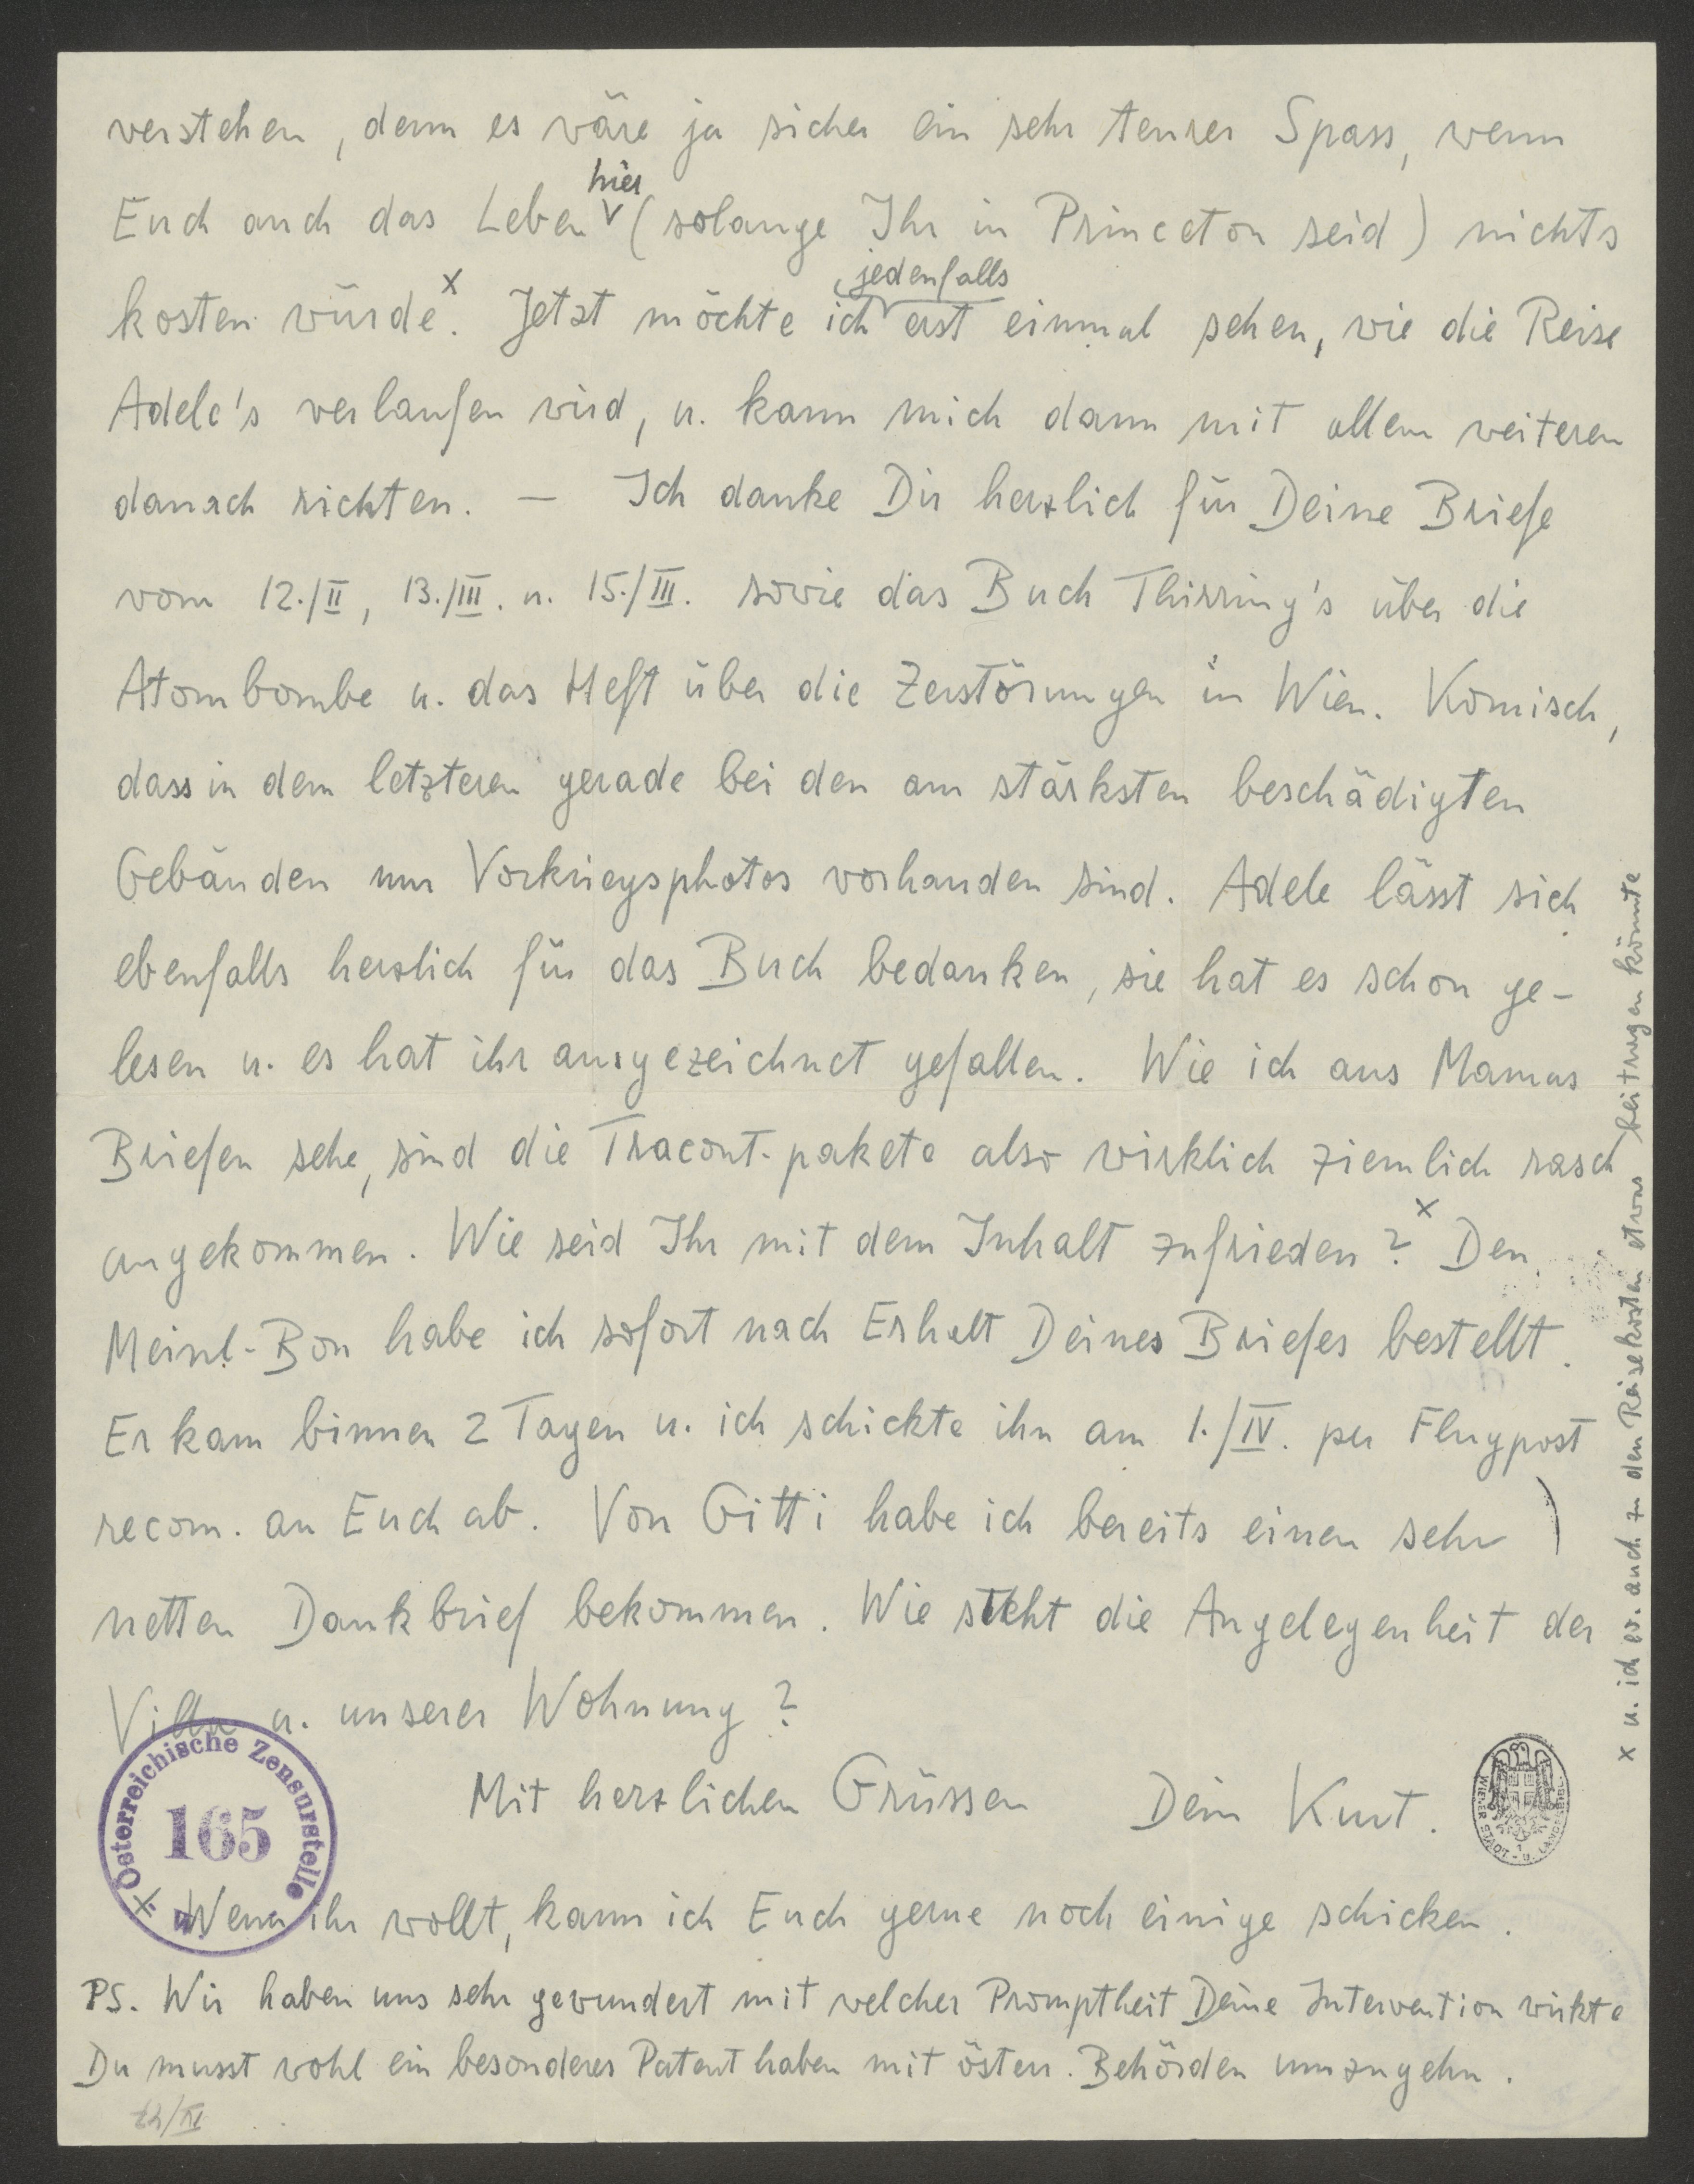 verstehen, denn es wäre ja sicher ein sehr teurer Spass, wenn
Euch auch das Leben hier (solange Ihr in Princeton seid) nichts
kosten würde.x Jetzt möchte ich jedenfalls erst einmal sehen, wie die Reise
Adele's verlaufen wird, u. kann mich dann mit allem weiteren
danach richten. — Ich danke Dir herzlich für Deine Briefe
vom 12./II, 13./III. u. 15./III. sowie das Buch Thirring's über die
Atombombe u. das Heft über die Zerstörungen in Wien. Komisch,
dass in dem letzteren gerade bei den am stärksten beschädigten
Gebäuden nur Vorkriegsphotos vorhanden sind. Adele lässt sich
ebenfalls herzlich für das Buch bedanken, sie hat es schon ge-
lesen u. es hat ihr ausgezeichnet gefallen. Wie ich aus Mamas
Briefen sehe, sind die Tracont-pakete also wirklich ziemlich rasch
angekommen. Wie seid Ihr mit dem Inhalt zufrieden?x Den
Meinl-Bon habe ich sofort nach Erhalt Deines Briefes bestellt.
Er kam binnen 2 Tagen u. ich schickte ihn am 1./IV. per Flugpost
recom. an Euch ab. Von Gitti habe ich bereits einen sehr
netten Dankbrief bekommen. Wie steht die Angelegenheit der
Villa u. unserer Wohnung?
Mit herzlichen Grüssen Dein Kurt.
x Wenn ihr wollt, kann ich Euch gerne noch einige schicken.
PS. Wir haben uns sehr gewundert mit welcher Promptheit Deine Intervention wirkte
Du musst wohl ein besonderes Patent haben mit österr. Behörden umzugehn.
x u. ich ev. auch zu den Reisekosten etwas beitragen könnte
Österreichische Zensurstelle
165
WIENER STADT- U. LANDESBIBL.